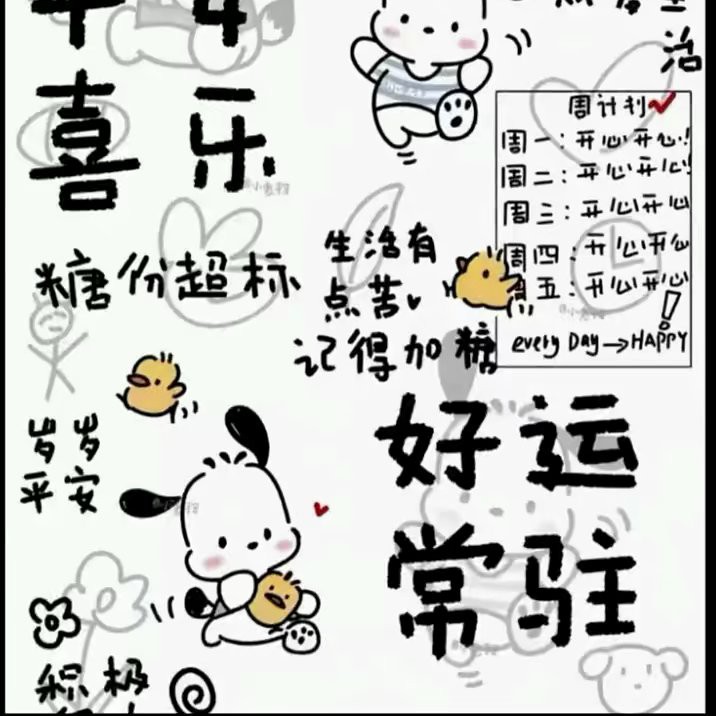 喜乐
糖份超标
生活有
点苦
记得加糖
治
周计划
周一:开心开心!
周二:开心开心!
周三:开心开心
周四:开心开心
五:开心开心!
every DAY→HAPPY
岁岁
平安
好运
常驻
积极